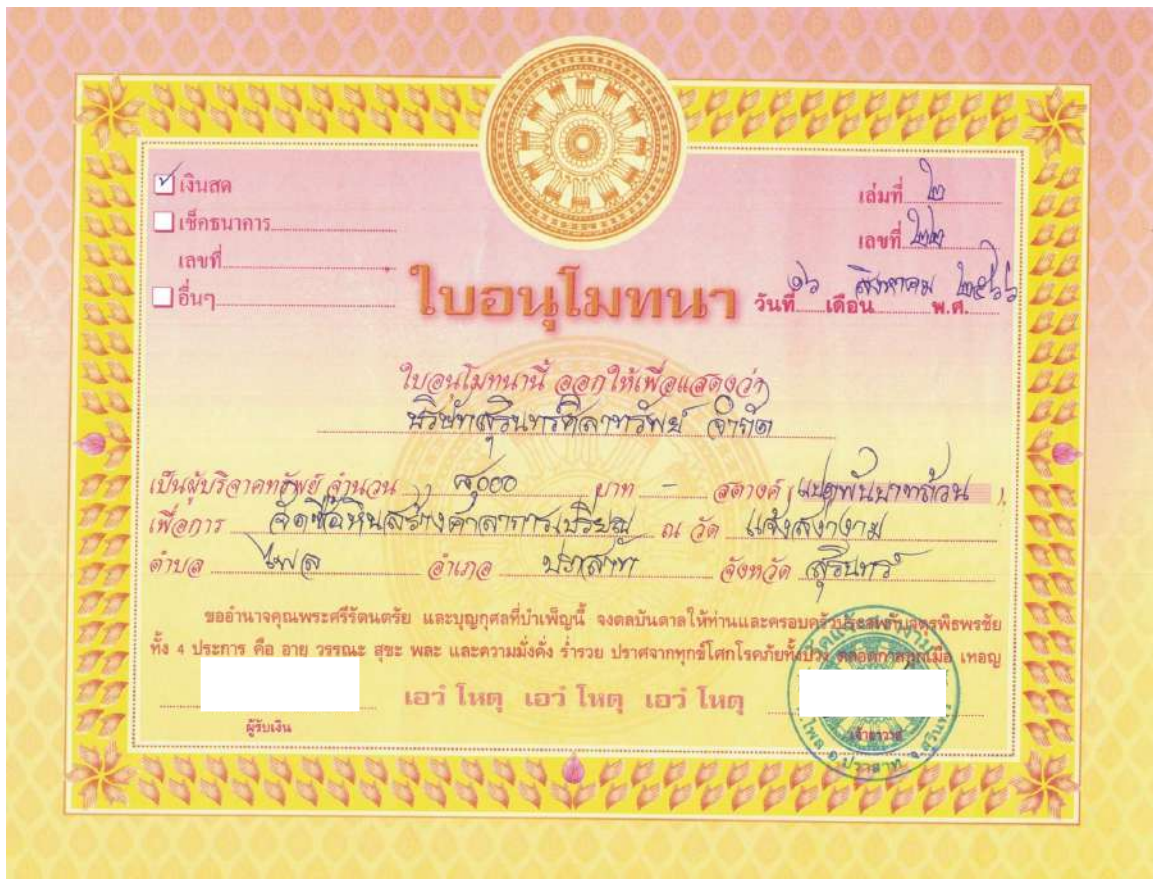 เงินสด
เล่มที่ ๒
เช็คธนาคาร
เลขที่ ๒๒
เลขที่
อื่นๆ
ใบอนุโมทนา
วันที่ ๑๖ เดือน สิงหาคม พ.ศ. ๒๕๖๖
ใบอนุโมทนานี้ ออกให้เพื่อแสดงว่า
บริษัทสุรินทร์ศิลาทรัพย์ จำกัด
เป็นผู้บริจาคทรัพย์ จำนวน ๘,๐๐๐ บาท - สตางค์ (แปดพันบาทถ้วน)
เพื่อการ จัดซื้อหินสร้างศาลาการเปรียญ ณ วัด แจ้งสง่างาม
ตำบล ไพล อำเภอ ปราสาท จังหวัด สุรินทร์
ขออำนาจคุณพระศรีรัตนตรัย และบุญกุศลที่บำเพ็ญนี้ จงดลบันดาลให้ท่านและครอบครัวประสบกับจตุรพิธพรชัย
ทั้ง 4 ประการ คือ อายุ วรรณะ สุขะ พละ และความมั่งคั่ง ร่ำรวย ปราศจากทุกข์โศกโรคภัยทั้งปวง ตลอดกาลทุกเมื่อ เทอญ
เอวํ โหตุ เอวํ โหตุ เอวํ โหตุ
ผู้รับเงิน
เจ้าอาวาส
วัดแจ้งสง่างาม
ต.ไพล อ.ปราสาท จ.สุรินทร์